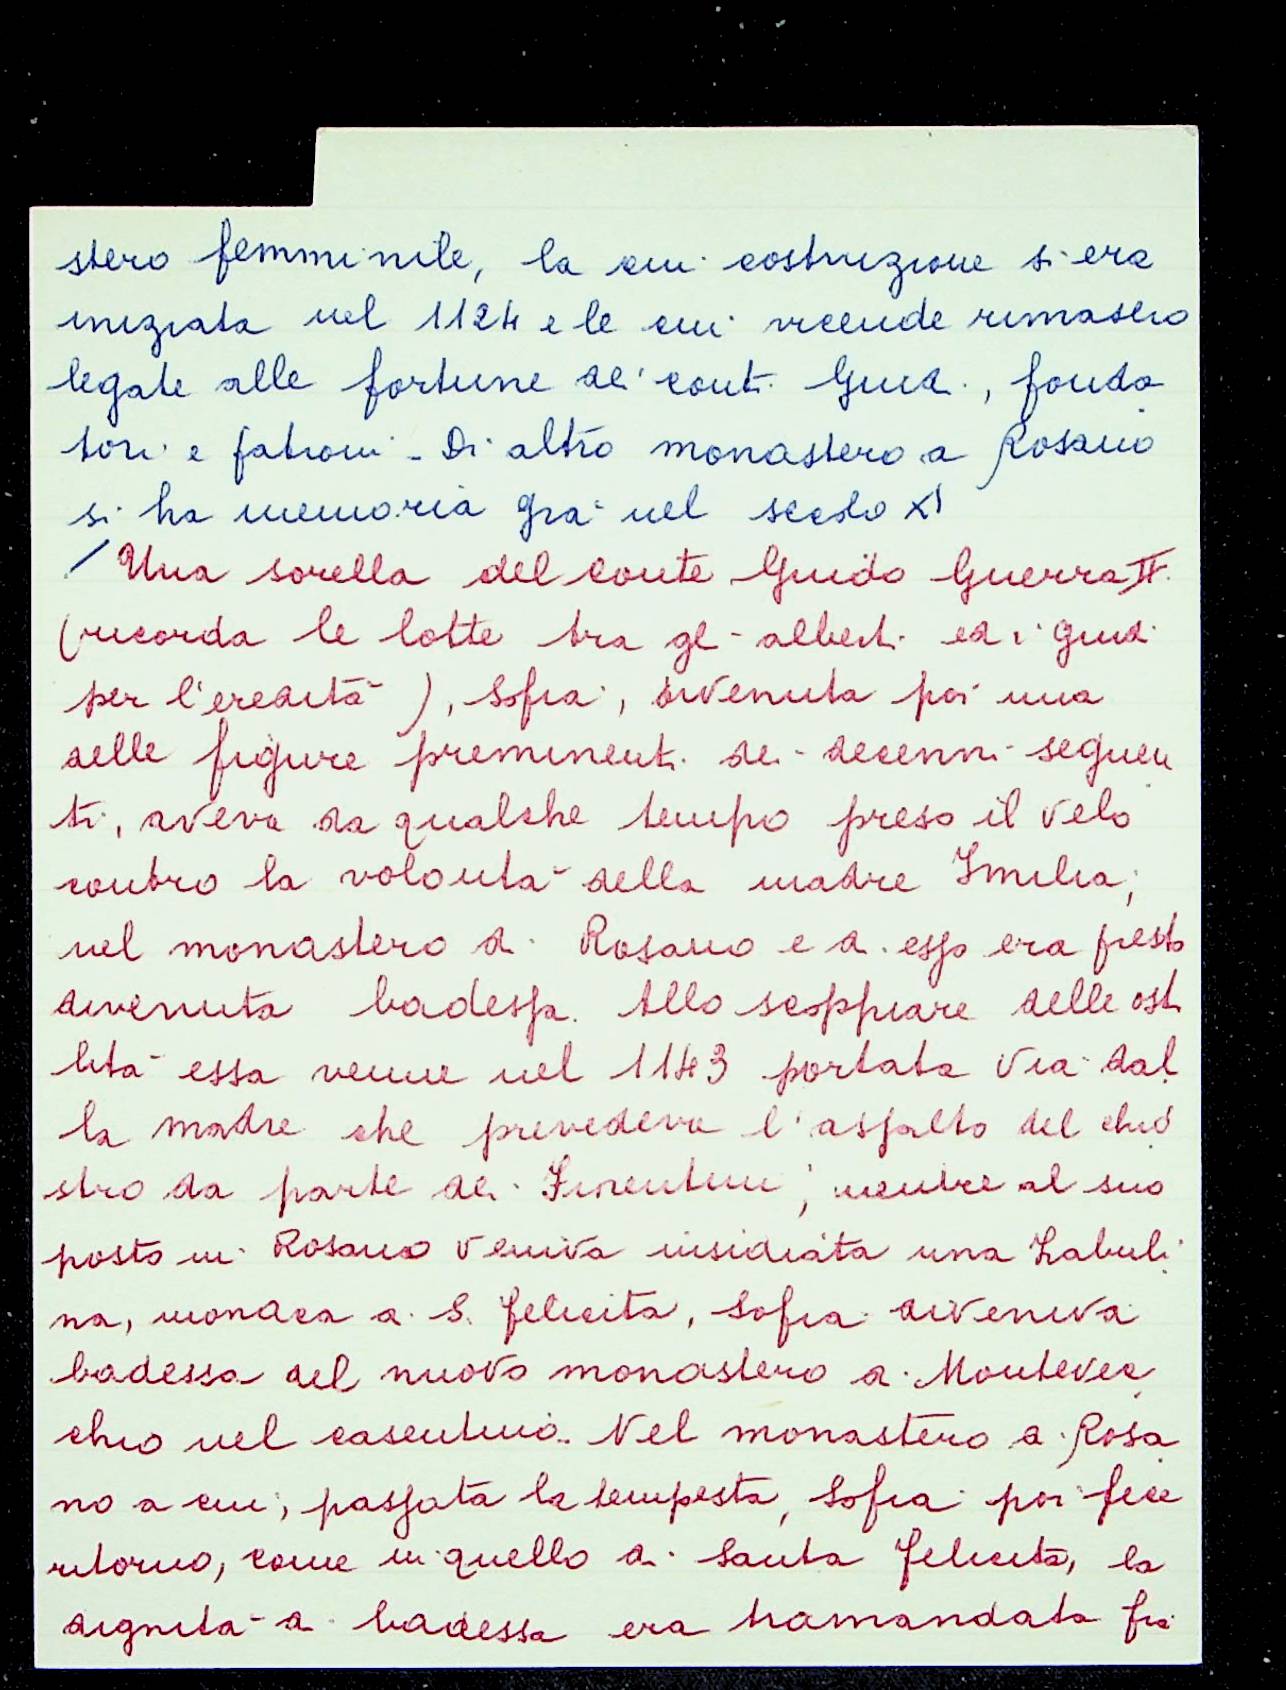 stero femminile, la cui costruzione si era
iniziata nel 1124 e le cui vicende rimasero
legate alle fortune dei conti Guidi, fonda
tori e patroni - Di altro monastero a Rosano
si ha memoria già nel secolo XI
/ Una sorella del conte Guido Guerra II
(ricorda le lotte tra gli alberti ed i guidi
per l'eredità), Sofia, divenuta poi una
delle figure preminenti dei decenni seguen
ti, aveva da qualche tempo preso il velo
contro la volontà della madre Imilia,
nel monastero di Rosano e di esso era presto
divenuta badessa. Allo scoppiare delle osti
lità essa venne nel 1143 portata via dal
la madre che prevedeva l'assalto del chio
stro da parte dei Fiorentini; mentre al suo
posto in Rosano veniva insidiata una Zabuli
na, monaca di S. Felicita, Sofia diveniva
badessa del nuovo monastero di Montevec
chio nel casentino. Nel monastero di Rosa
no a cui, passata la tempesta, Sofia poi fece
ritorno, come in quello di Santa Felicita, la
dignità di badessa era tramandata fra